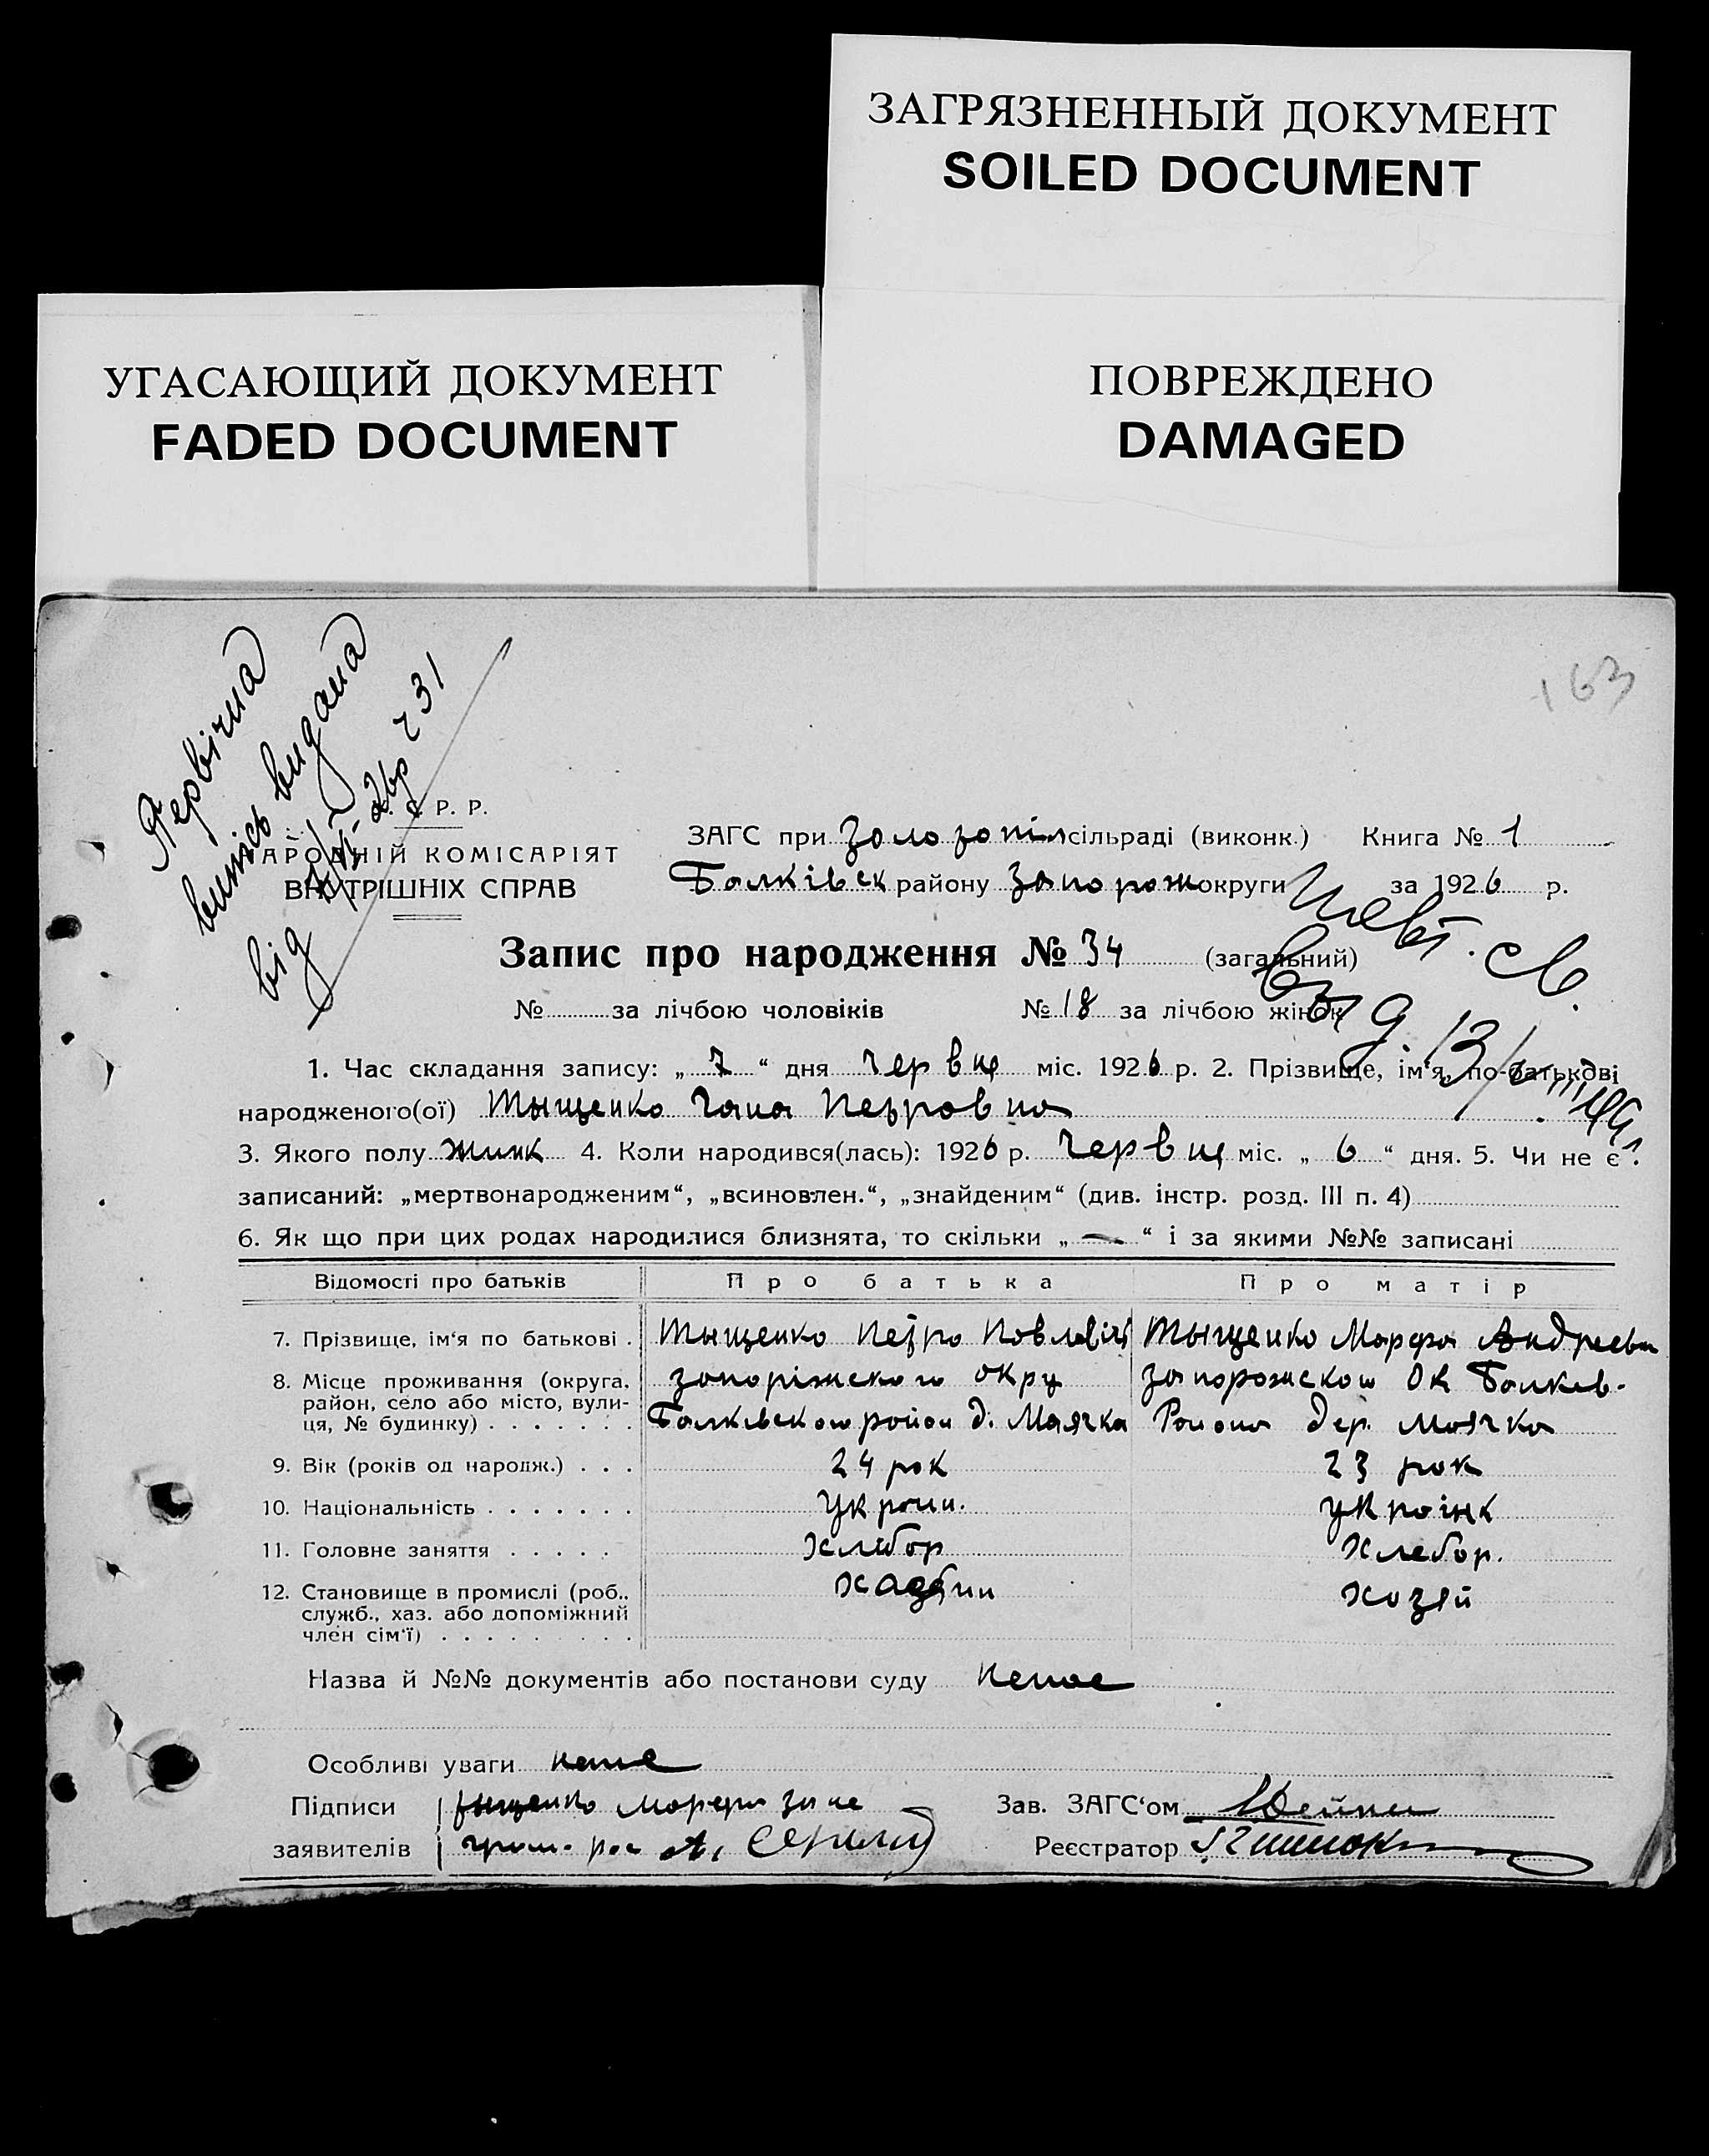 ЗАГРЯЗНЕННЫЙ ДОКУМЕНТ
SOILED DOCUMENT
УГАСАЮЩИЙ ДОКУМЕНТ
FADED DOCUMENT
ПОВРЕЖДЕНО
DAMAGED
163
Первічна
випись видана
від
Р. Р.
НАРОДНІЙ КОМІСАРІЯТ
ВНУТРІШНІХ СПРАВ
ЗАГС при Золозопіл сільраді (виконк.) Книга № 1
Балківск району Запорож округи за 1926 р.
Запис про народження № 34 (загальний)
№ за лічбою чоловіків № 18 за лічбою жінок
1. Час складання запису: „ 7 “ дня червця міс. 1926 р. 2. Прізвище, ім'я, по-батькові
народженого(ої) Тыщенко Гана Петровна
3. Якого полу жинк 4. Коли народився(лась): 1926 р. червця міс. „ 6 “ дня. 5. Чи не є
записаний: „мертвонародженим“, „всиновлен.“, „знайденим“ (див. інстр. розд. III п. 4)
6. Як що при цих родах народилися близнята, то скільки „ — “ і за якими №№ записані
Відомості про батьків Про батька Про матір
7. Прізвище, ім'я по батькові . Тыщенко Петро Повловіч Тыщенко Марфа Андреевн
8. Місце проживання (округа, запоріжского окру запорожского Ок Балков-
район, село або місто, вули-
ця, № будинку) . . . . . . . Балківского район д. Маячка Района дер. Маячка
9. Вік (років од народж.) . . . 24 рок 23 рок
10. Національність . . . . . . . Украин. Украінк
11. Головне заняття . . . . . Хлибор Хлебор.
12. Становище в промислі (роб., хозяй
служб., хаз. або допоміжний
член сім'ї) . . . . . . . . .
Назва й №№ документів або постанови суду немае
Особливі уваги немае
Підписи Тыщенко Марфа за не Зав. ЗАГС'ом
заявителів Реєстратор